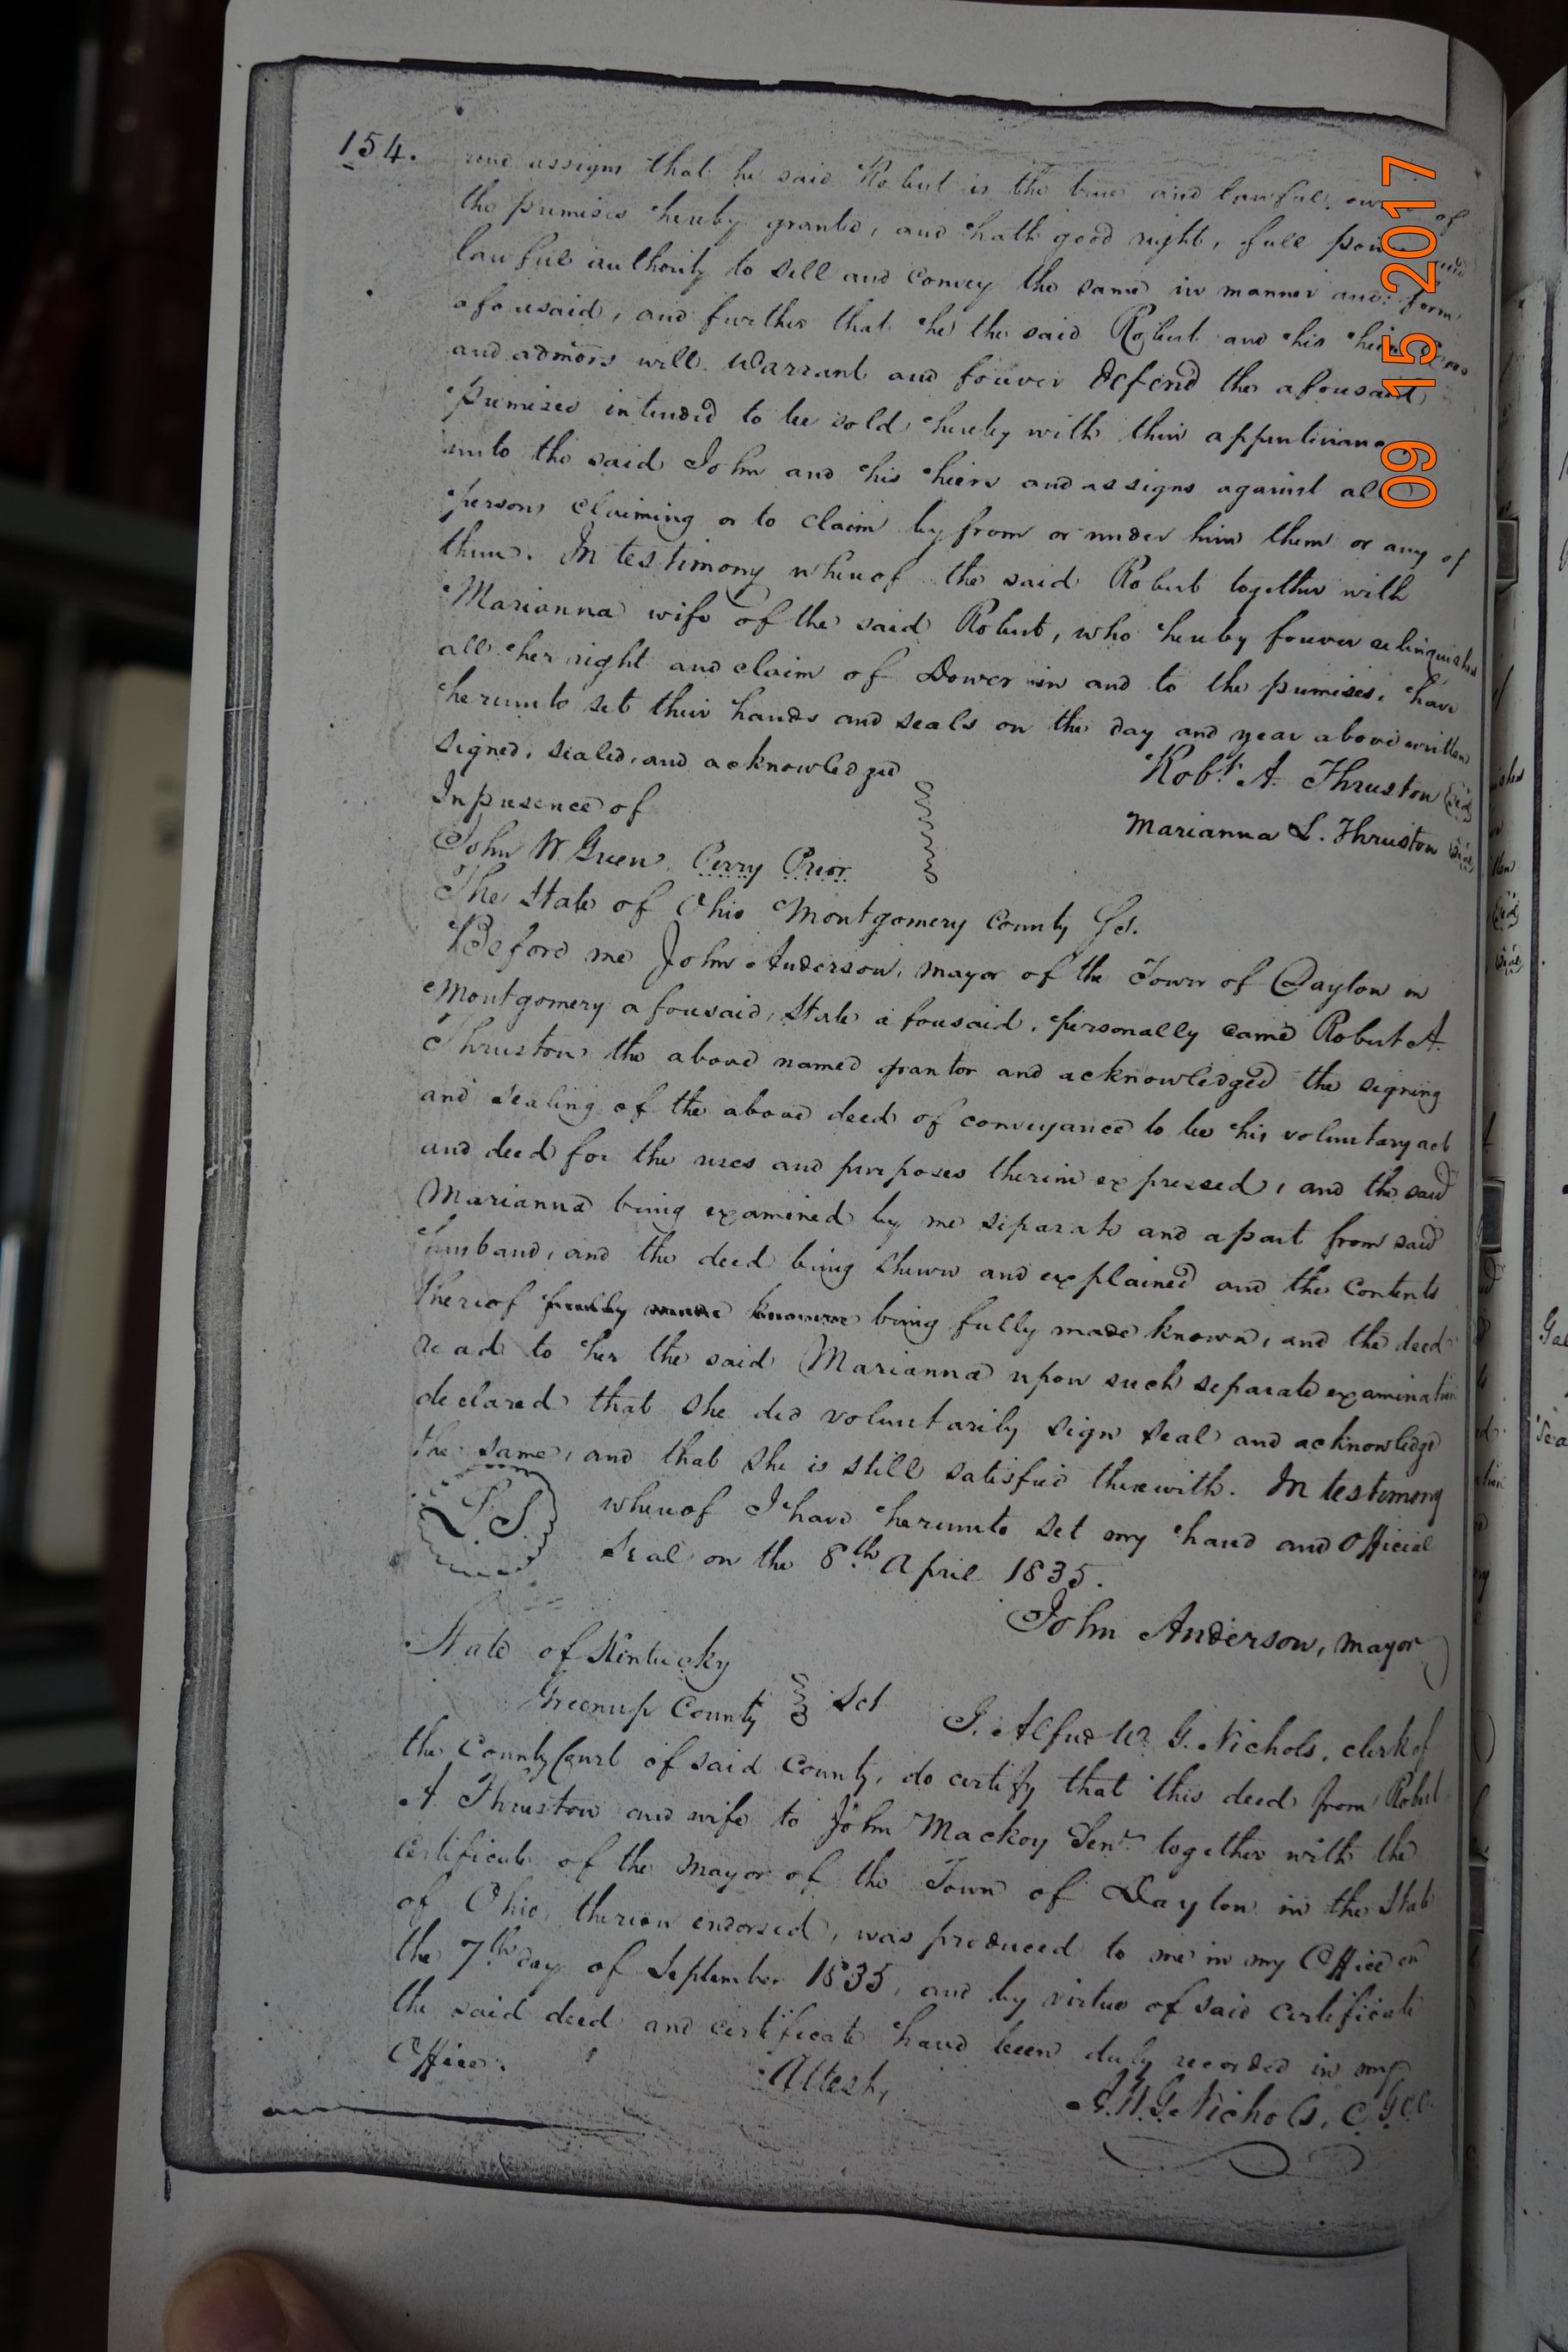 154.
and assigns that he said Robert is the true and lawful of
the premises hereby granted, and hath good right, full and
lawful authority to sell and convey the same in manner and form
aforesaid, and further that he the said Robert and his
and admors will warrant and forever defend the aforesaid
premises intended to be sold hereby with their
unto the said John and his heirs and assigns against all
persons claiming or to claim by from or under him them or any of
them. In testimony whereof the said Robert together with
Marianna wife of the said Robert, who hereby forever relinquishes
all her right and claim of Dower in and to the premises, have
hereunto set their hands and seals on the day and year above written
Signed, sealed, and acknowledged
In presence of
Robt. A. Thruston Seal
John W. Green. Perry Prior
Marianna L. Thruston Seal
The State of Ohio Montgomery County Sct.
Before me John Anderson, mayor of the Town of Dayton in
Montgomery aforesaid, State aforesaid, personally came Robert A.
Thruston the above named grantor and acknowledged the signing
and sealing of the above deed of conveyance to be his voluntary act
and deed for the uses and purposes therein expressed, and the said
Marianna being examined by me separate and apart from said
husband, and the deed being shewn and explained and the contents
thereof fully made known being fully made known, and the deed
read to her the said Marianna upon such separate examination
declared that she did voluntarily sign seal and acknowledge
the same, and that she is still satisfied therewith. In testimony
L.S. whereof I have hereunto set my hand and Official
Seal on the 8th April 1835.
John Anderson, mayor
State of Kentucky
Greenup County Sct I. Alfred W. G. Nichols, clerk of
the County Court of said county, do certify that this deed from Robert
A Thruston and wife to John Mackoy Senr. together with the
certificate of the mayor of the Town of Dayton in the State
of Ohio, thereon endorsed, was produced to me in my Office on
the 7th day of September 1835, and by virtue of said certificate
the said deed and certificate have been duly recorded in my
Office.
Attest,
A.W.G. Nichols, C.G.C.C.
09 15 2017